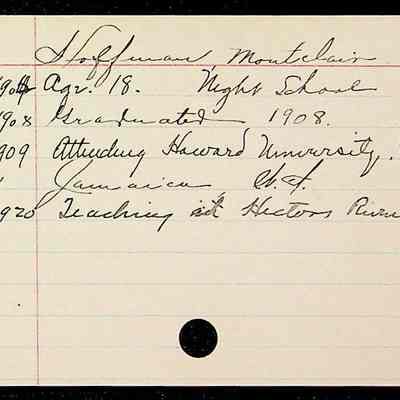 Hoffman Montclair
1904 Agr. 18. Night School
1908 Graduated 1908.
1909 Attending Howard University.
" Jamaica
1920 Teaching at Hectors River